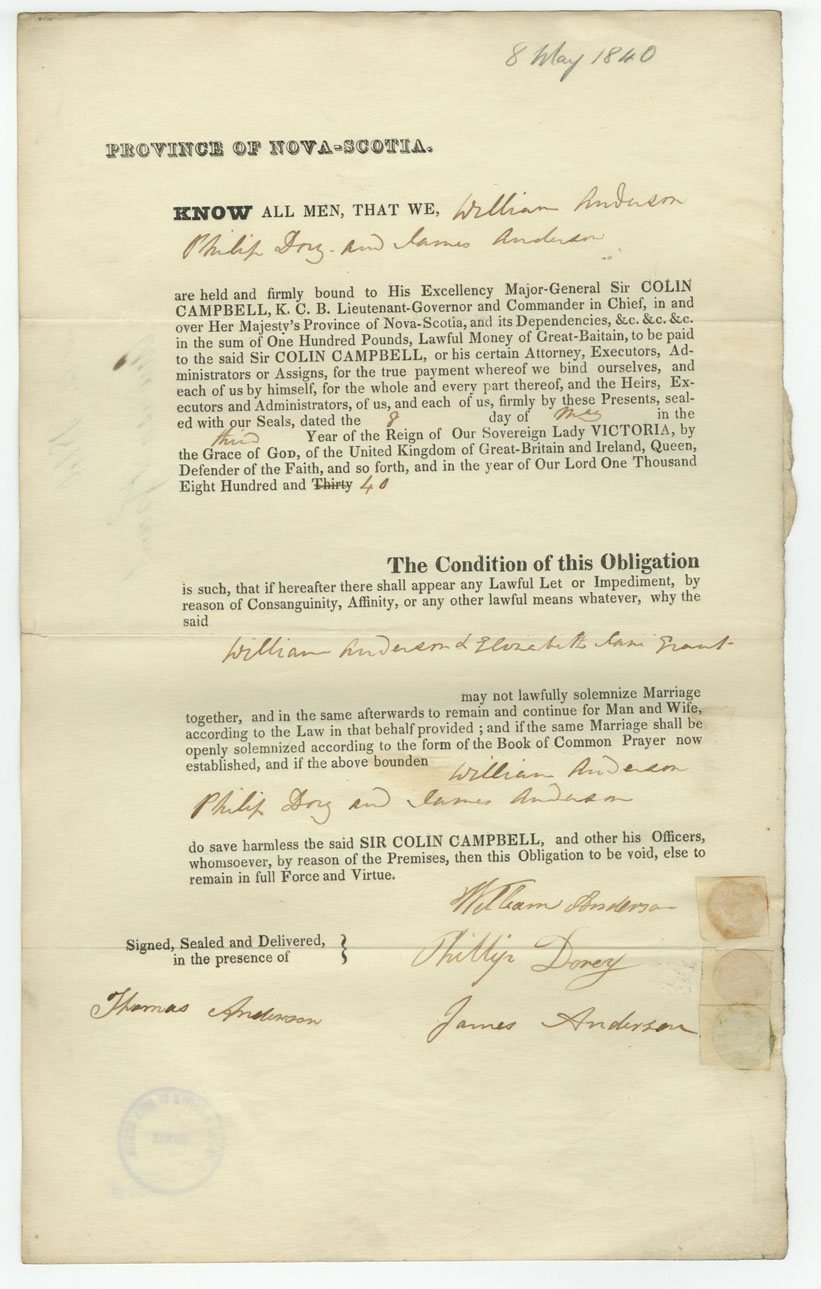 8 May 1840
PROVINCE OF NOVA-SCOTIA.
KNOW ALL MEN, THAT WE, William Anderson
Philip Dory and James Anderson
are held and firmly bound to His Excellency Major-General Sir COLIN
CAMPBELL, K. C. B. Lieutenant-Governor and Commander in Chief, in and
over Her Majesty's Province of Nova-Scotia, and its Dependencies, &c. &c. &c.
in the sum of One Hundred Pounds, Lawful Money of Great-Baitain, to be paid
to the said Sir COLIN CAMPBELL, or his certain Attorney, Executors, Ad-
ministrators or Assigns, for the true payment whereof we bind ourselves, and
each of us by himself, for the whole and every part thereof, and the Heirs, Ex-
ecutors and Administrators, of us, and each of us, firmly by these Presents, seal-
ed with our Seals, dated the 8 day of May in the
third Year of the Reign of Our Sovereign Lady VICTORIA, by
the Grace of GOD, of the United Kingdom of Great-Britain and Ireland, Queen,
Defender of the Faith, and so forth, and in the year of Our Lord One Thousand
Eight Hundred and Thirty 40
The Condition of this Obligation
is such, that if hereafter there shall appear any Lawful Let or Impediment, by
reason of Consanguinity, Affinity, or any other lawful means whatever, why the
said
William Anderson & Elizabeth Jane Grant
may not lawfully solemnize Marriage
together, and in the same afterwards to remain and continue for Man and Wife,
according to the Law in that behalf provided ; and if the same Marriage shall be
openly solemnized according to the form of the Book of Common Prayer now
established, and if the above bounden William Anderson
Philip Dory and James Anderson
do save harmless the said SIR COLIN CAMPBELL, and other his Officers,
whomsoever, by reason of the Premises, then this Obligation to be void, else to
remain in full Force and Virtue.
William Anderson
Signed, Sealed and Delivered,
in the presence of
Phillip Dorey
Thomas Anderson
James Anderson